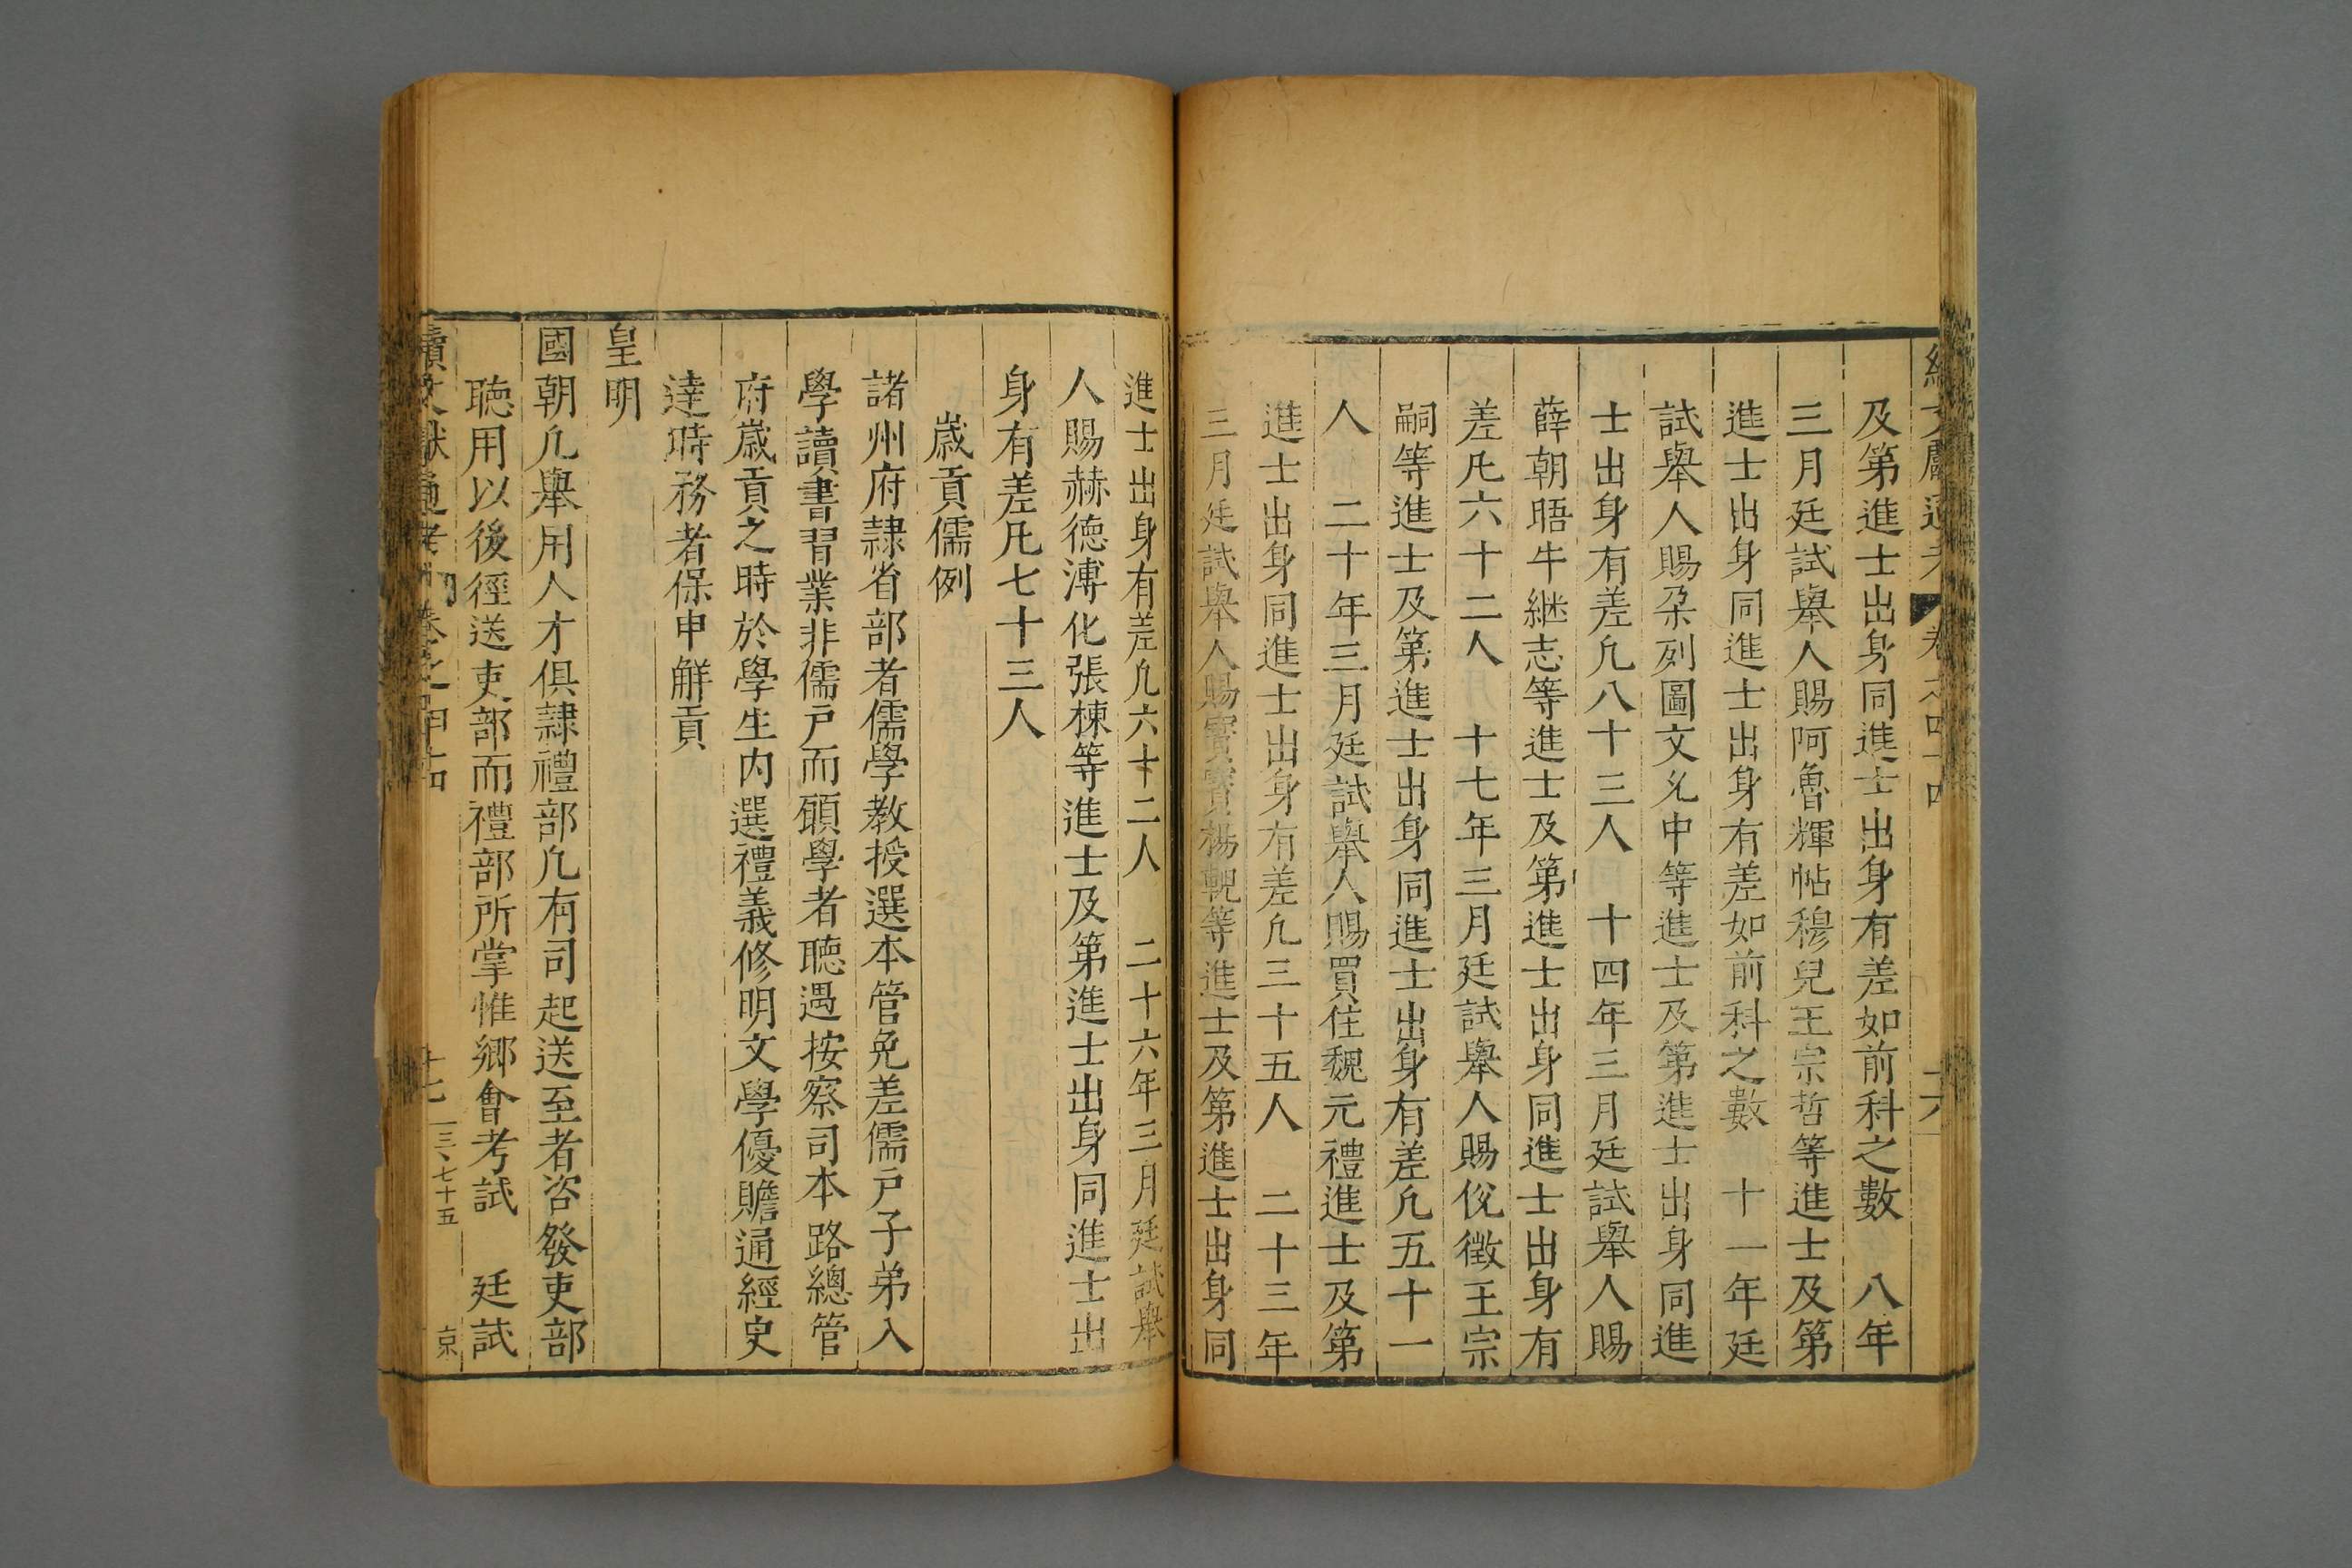 及第進士出身同進士出身有差如前科之數　八年
三月廷試舉人賜阿魯輝帖穆兒王宗哲等進士及第
進士出身同進士出身有差如前科之數　十一年廷
試舉人賜朶列圖文允中等進士及第進士出身同進
士出身有差凢八十三人　十四年三月廷試舉人賜
薛朝晤牛継志等進士及第進士出身同進士出身有
差凢六十二人　十七年三月廷試舉人賜侻徵王宗
嗣等進士及第進士出身同進士出身有差凢五十一
人　二十年三月廷試舉人賜買住魏元禮進士及第
進士出身同進士出身有差凢三十五人　二十三年
三月廷試舉人賜寶寶楊輗等進士及第進士出身同
進士出身有差凢六十二人　二十六年三月廷試舉
人賜赫德溥化張棟等進士及第進士出身同進士出
身有差凢七十三人
歲貢儒例
諸州府隷省部者儒學教授選本管免差儒戸子弟入
學讀書習業非儒戸而願學者聽遇按察司本路總管
府歲貢之時於學生内選禮義修明文學優贍通經史
達時務者保申觧貢
皇明
國朝凢舉用人才俱隷禮部凢有司起送至者咨發吏部
聽用以後徑送吏部而禮部所掌惟鄉會考試　廷試
續文獻通考　卷之四十四　十七　三、七十五　京